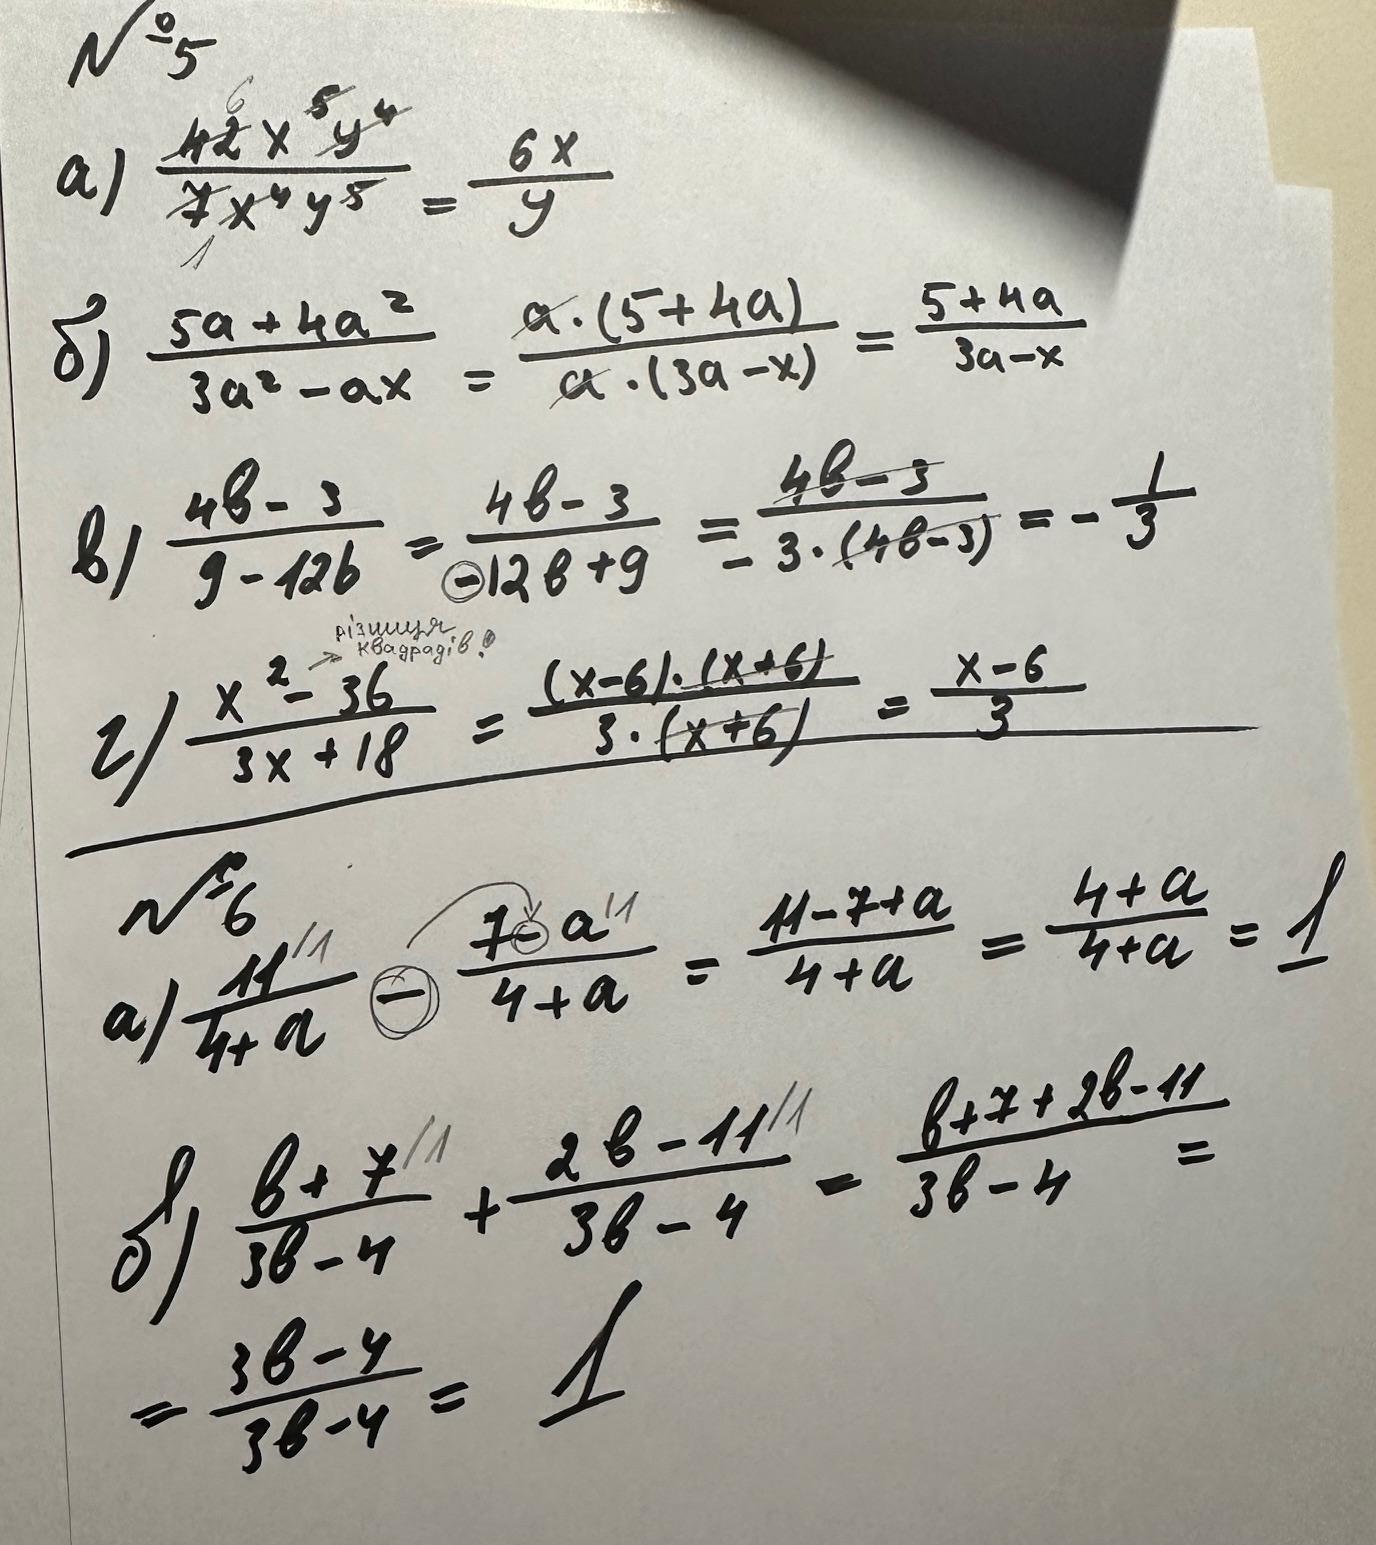 №5
а) 42x⁵y⁴ / 7x⁴y⁵ = 6x / y
6
1
б) 5a + 4a² / 3a² - ax = a·(5+4a) / a·(3a-x) = 5+4a / 3a-x
в) 4b - 3 / 9 - 12b = 4b - 3 / -12b + 9 = 4b - 3 / -3·(4b-3) = - 1/3
різниця
квадрадів!
г) x² - 36 / 3x + 18 = (x-6)·(x+6) / 3·(x+6) = x-6 / 3
№6
а) 11 /1 / 4+a - 7-a /1 / 4+a = 11-7+a / 4+a = 4+a / 4+a = 1
б) b+7 /1 / 3b-4 + 2b-11 /1 / 3b-4 = b+7+2b-11 / 3b-4 =
= 3b-4 / 3b-4 = 1